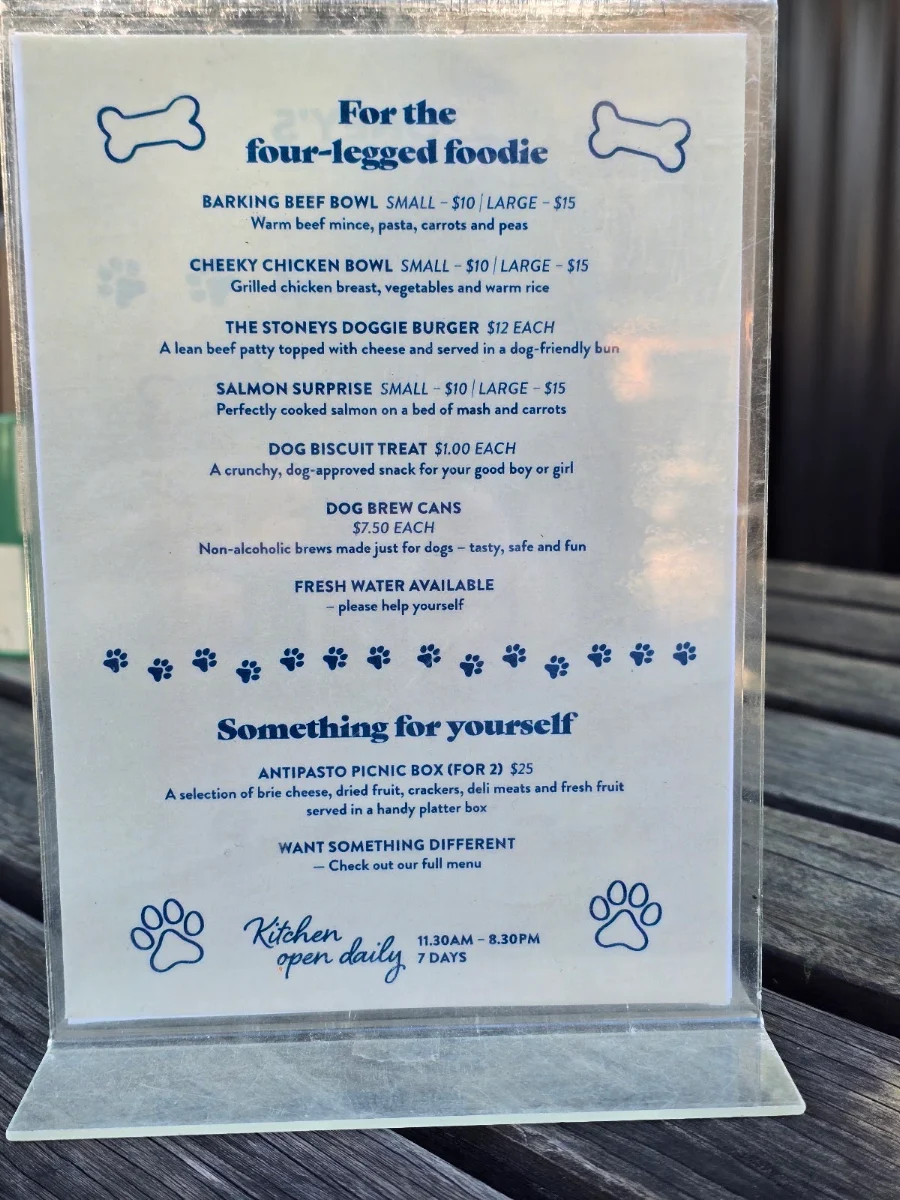 For the
four-legged foodie
BARKING BEEF BOWL SMALL – $10 | LARGE – $15
Warm beef mince, pasta, carrots and peas
CHEEKY CHICKEN BOWL SMALL – $10 | LARGE – $15
Grilled chicken breast, vegetables and warm rice
THE STONEYS DOGGIE BURGER $12 EACH
A lean beef patty topped with cheese and served in a dog-friendly bun
SALMON SURPRISE SMALL – $10 | LARGE – $15
Perfectly cooked salmon on a bed of mash and carrots
DOG BISCUIT TREAT $1.00 EACH
A crunchy, dog-approved snack for your good boy or girl
DOG BREW CANS
$7.50 EACH
Non-alcoholic brews made just for dogs – tasty, safe and fun
FRESH WATER AVAILABLE
– please help yourself
Something for yourself
ANTIPASTO PICNIC BOX (FOR 2) $25
A selection of brie cheese, dried fruit, crackers, deli meats and fresh fruit
served in a handy platter box
WANT SOMETHING DIFFERENT
— Check out our full menu
Kitchen
open daily
11.30AM – 8.30PM
7 DAYS